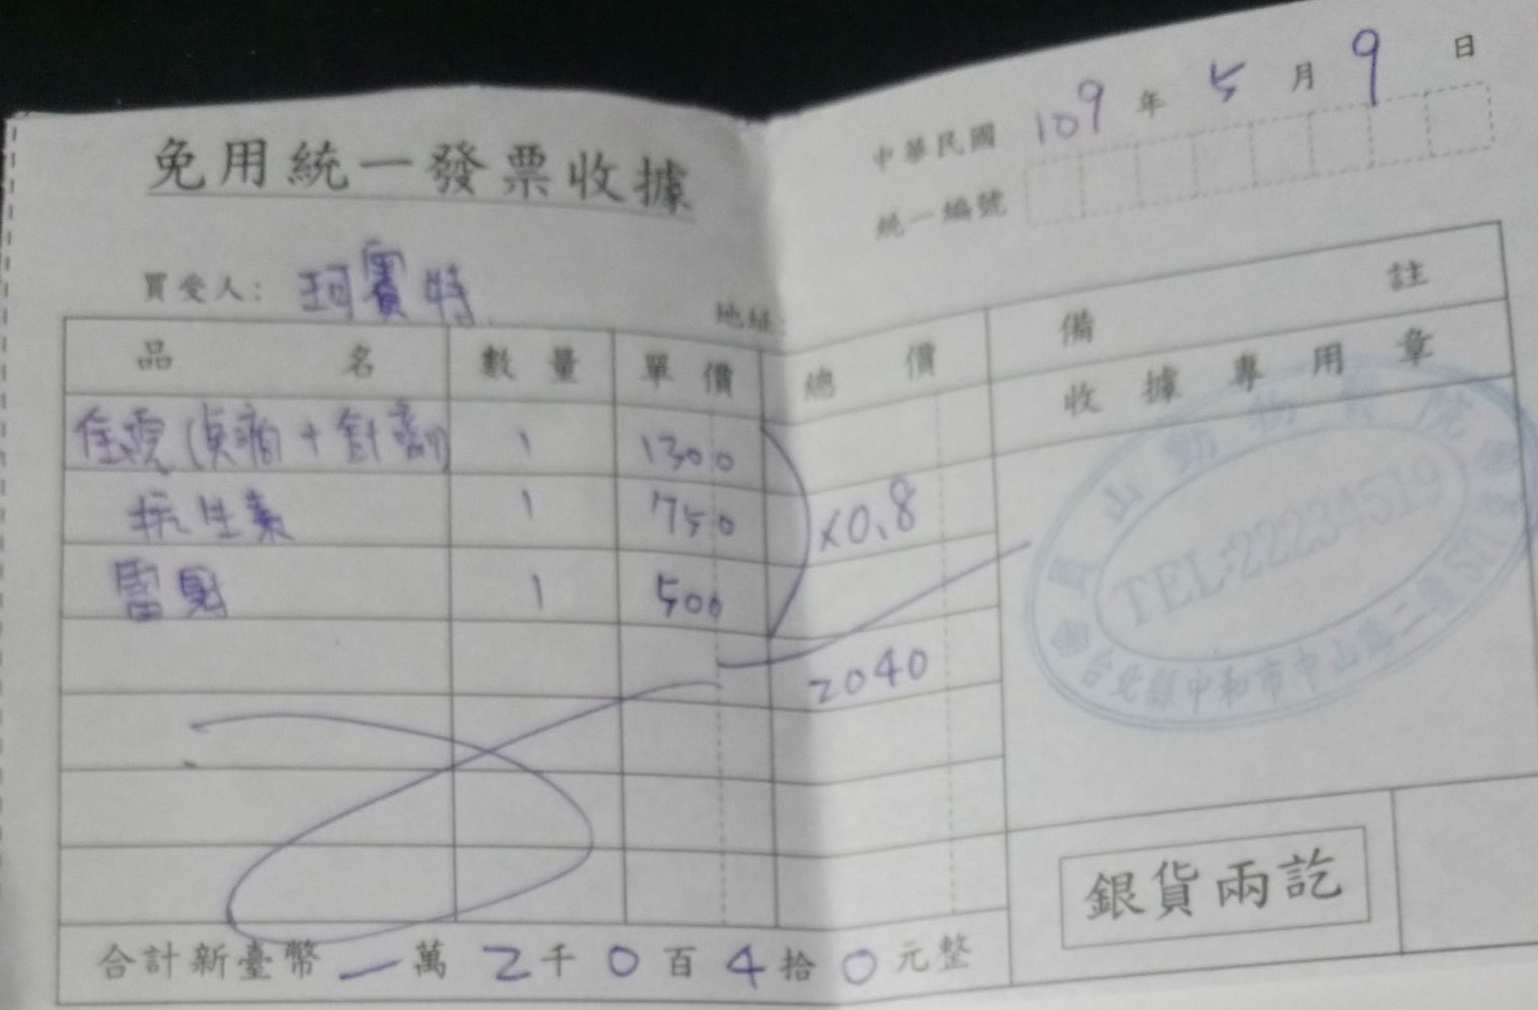 免用統一發票收據
中華民國 109 年 5 月 9 日
統一編號
買受人: 珂賽特
地址:
品名 數量 單價 總價 備註
收據專用章
住院(點滴+針劑) 1 1300
抗生素 1 750 ×0.8
雷射 1 500
2040
員山動物醫院
TEL:22234519
台北縣中和市中山路二段
銀貨兩訖
合計新臺幣 一 萬 2 千 0 百 4 拾 0 元整